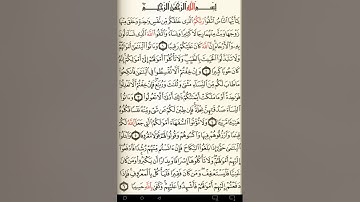 بِسْمِ اللَّهِ الرَّحْمَٰنِ الرَّحِيمِ
يَٰٓأَيُّهَا النَّاسُ اتَّقُوا رَبَّكُمُ الَّذِي خَلَقَكُم مِّن نَّفْسٍ وَٰحِدَةٍ وَخَلَقَ مِنْهَا
زَوْجَهَا وَبَثَّ مِنْهُمَا رِجَالًا كَثِيرًا وَنِسَآءً وَاتَّقُوا اللَّهَ الَّذِي تَسَآءَلُونَ
بِهِ وَالْأَرْحَامَ إِنَّ اللَّهَ كَانَ عَلَيْكُمْ رَقِيبًا ١ وَءَاتُوا الْيَتَٰمَىٰٓ أَمْوَٰلَهُمْ
وَلَا تَتَبَدَّلُوا الْخَبِيثَ بِالطَّيِّبِ وَلَا تَأْكُلُوٓا أَمْوَٰلَهُمْ إِلَىٰٓ أَمْوَٰلِكُمْ إِنَّهُ
كَانَ حُوبًا كَبِيرًا ٢ وَإِنْ خِفْتُمْ أَلَّا تُقْسِطُوا فِي الْيَتَٰمَىٰ فَانكِحُوا
مَا طَابَ لَكُم مِّنَ النِّسَآءِ مَثْنَىٰ وَثُلَٰثَ وَرُبَٰعَ فَإِنْ خِفْتُمْ أَلَّا تَعْدِلُوا
فَوَٰحِدَةً أَوْ مَا مَلَكَتْ أَيْمَٰنُكُمْ ذَٰلِكَ أَدْنَىٰٓ أَلَّا تَعُولُوا ٣ وَءَاتُوا النِّسَآءَ
صَدُقَٰتِهِنَّ نِحْلَةً فَإِن طِبْنَ لَكُمْ عَن شَيْءٍ مِّنْهُ نَفْسًا فَكُلُوهُ هَنِيٓـًٔا
مَّرِيٓـًٔا ٤ وَلَا تُؤْتُوا السُّفَهَآءَ أَمْوَٰلَكُمُ الَّتِي جَعَلَ اللَّهُ لَكُمْ
قِيَٰمًا وَارْزُقُوهُمْ فِيهَا وَاكْسُوهُمْ وَقُولُوا لَهُمْ قَوْلًا مَّعْرُوفًا ٥
وَابْتَلُوا الْيَتَٰمَىٰ حَتَّىٰٓ إِذَا بَلَغُوا النِّكَاحَ فَإِنْ ءَانَسْتُم مِّنْهُمْ رُشْدًا فَادْفَعُوٓا
إِلَيْهِمْ أَمْوَٰلَهُمْ وَلَا تَأْكُلُوهَآ إِسْرَافًا وَبِدَارًا أَن يَكْبَرُوا وَمَن كَانَ
غَنِيًّا فَلْيَسْتَعْفِفْ وَمَن كَانَ فَقِيرًا فَلْيَأْكُلْ بِالْمَعْرُوفِ فَإِذَا
دَفَعْتُمْ إِلَيْهِمْ أَمْوَٰلَهُمْ فَأَشْهِدُوا عَلَيْهِمْ وَكَفَىٰ بِاللَّهِ حَسِيبًا ٦